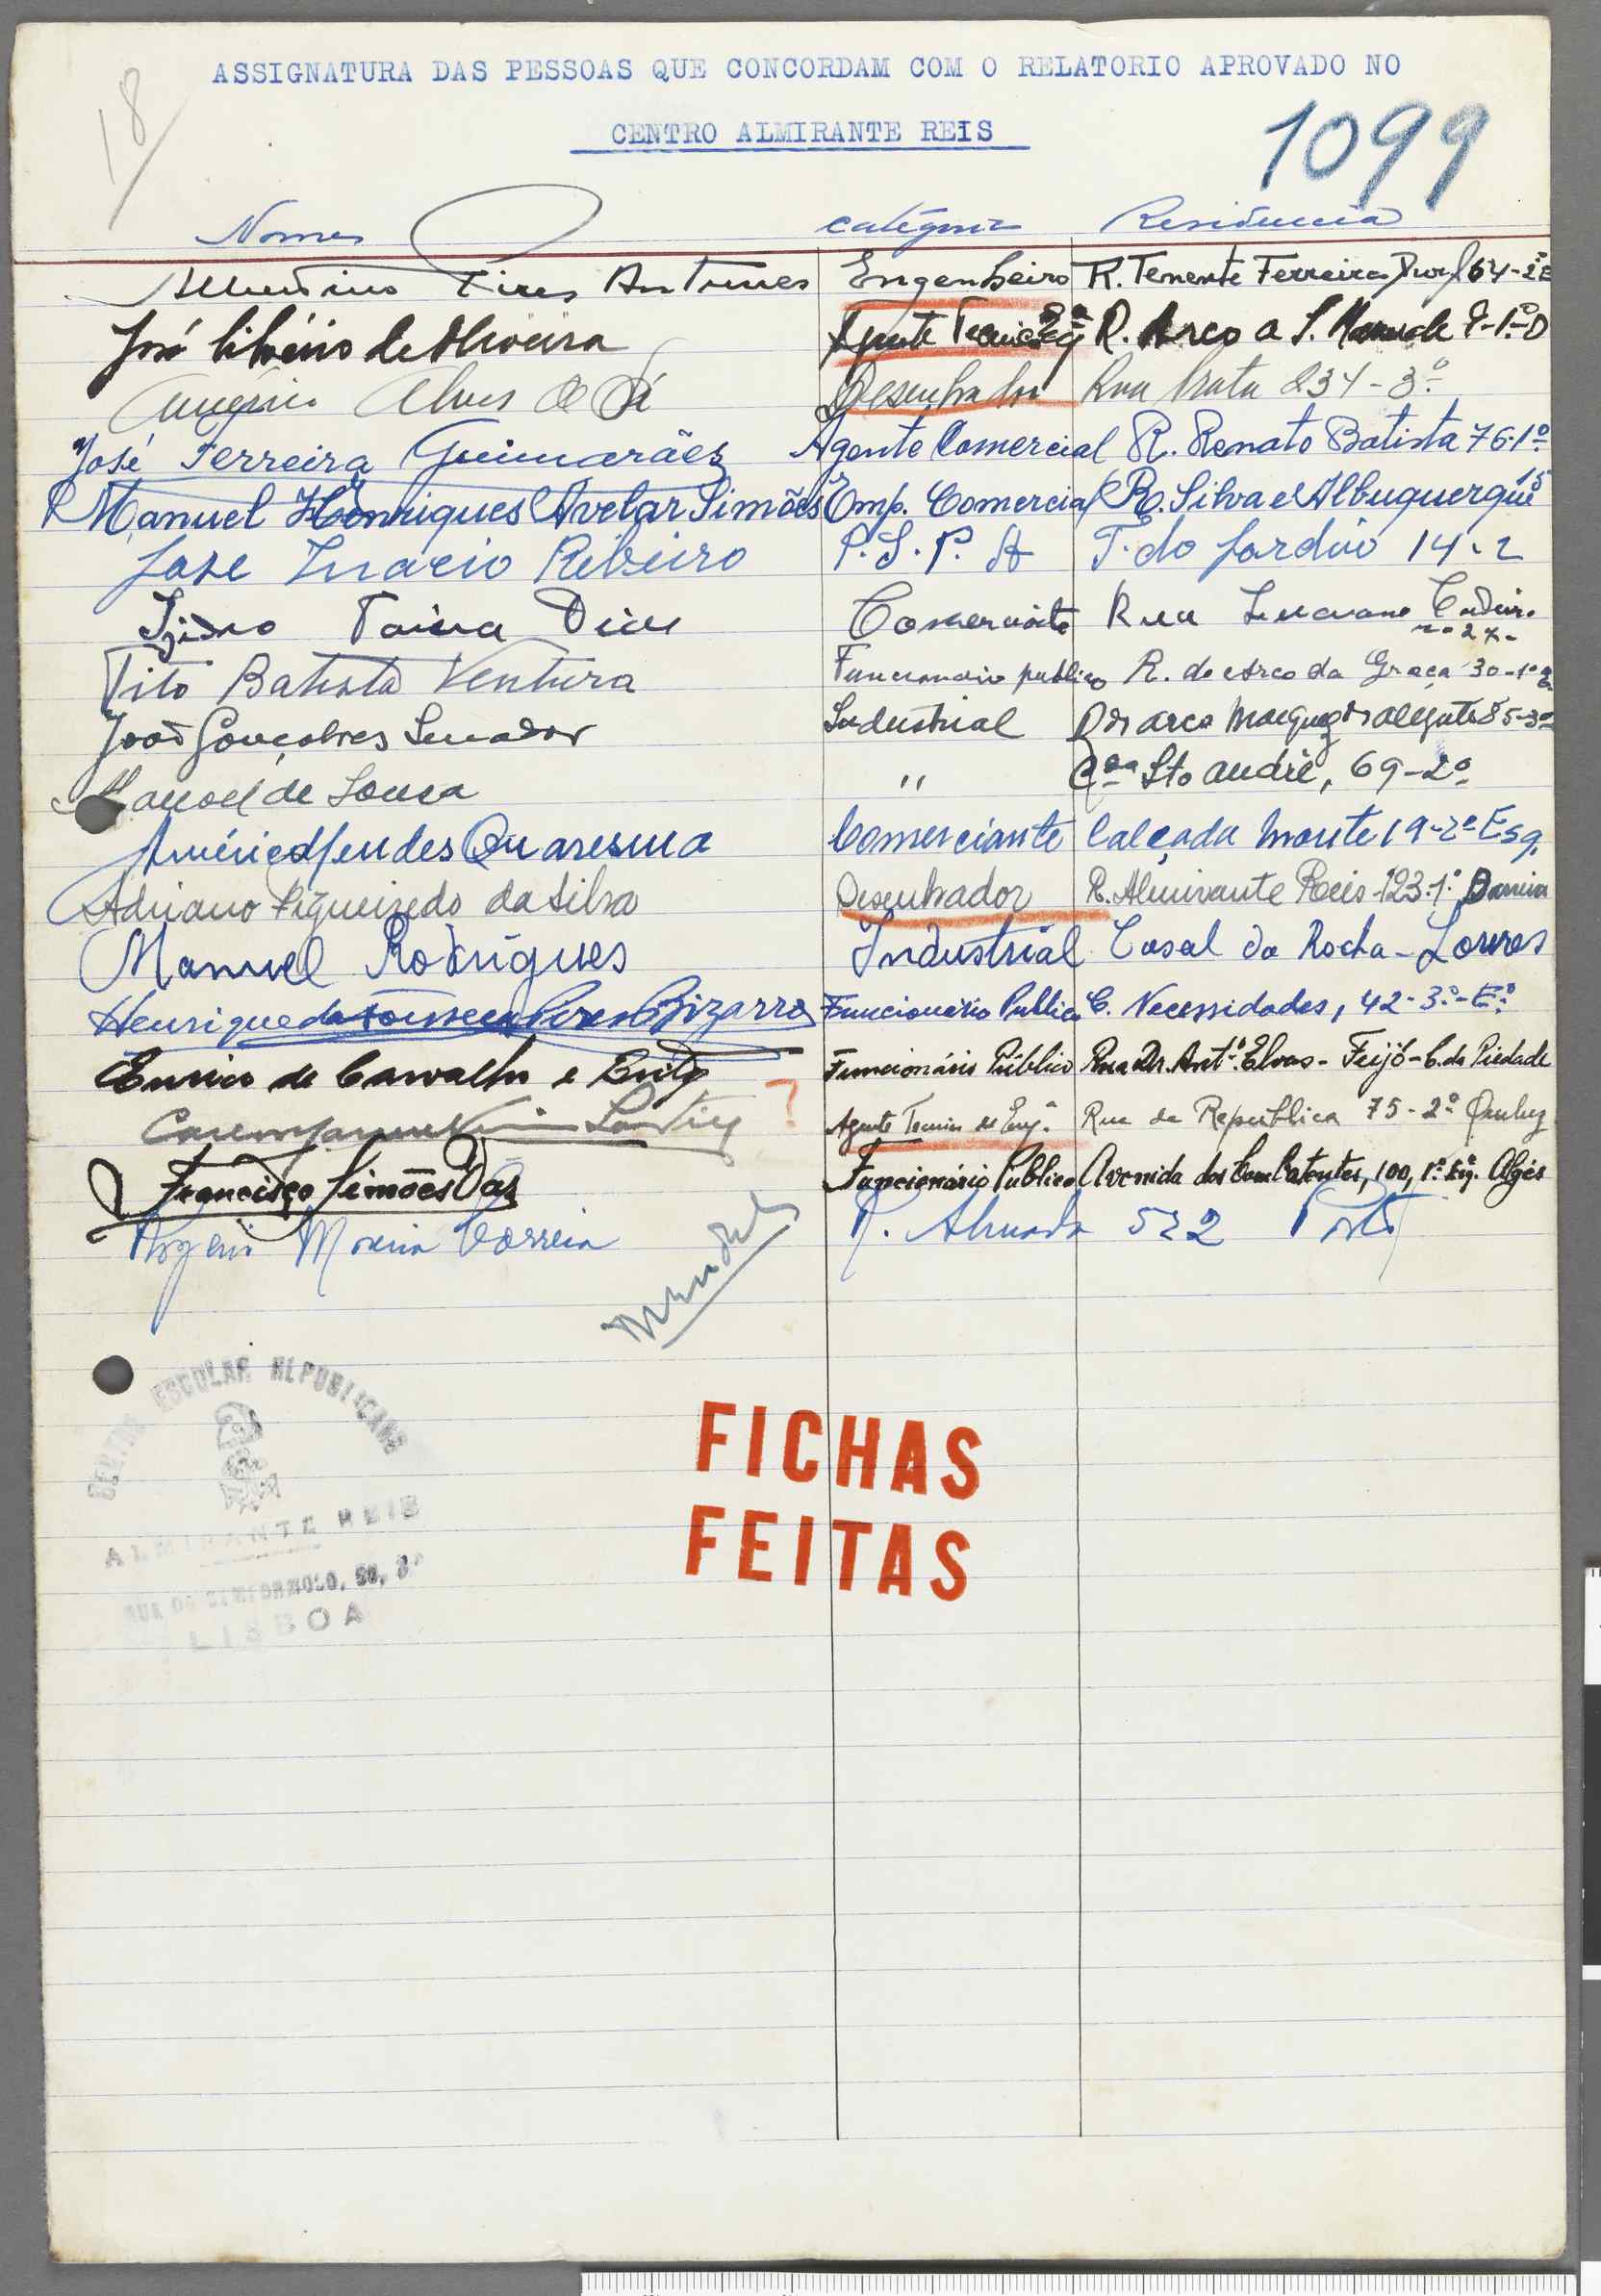 18
ASSIGNATURA DAS PESSOAS QUE CONCORDAM COM O RELATORIO APROVADO NO
CENTRO ALMIRANTE REIS
1099
Nomes categoria Residencia
Albertino Pires Antunes Engenheiro R. Tenente Ferreira 64-2º E
José Libério de Oliveira Agente Tecnico R. Arco a S. Mamede 1º-D
Alves de Sá Desenhador Rua Prata 234-3º
José Ferreira Guimarães Agente Comercial R. Renato Batista 76-1º
Manuel Henriques Avelar Simões Emp. Comercial R. Silva e Albuquerque 15
José Inacio Ribeiro P.S.P. A T. do Jardim 14-2
Isidro Paiva Dias Comerciante Rua Luciano Cordeiro
Tito Batista Ventura Funcionario publico R. do Arco da Graça 30-1º E
João Gonçalves Senador Industrial R do arco Marquez d'alegrete 85-3º
Manoel de Sousa " Cçda Sto André, 69-2º
Américo Mendes Quaresma Comerciante Calçada Monte 19-2º Esq.
Adriano Figueiredo da Silva Desenhador R. Almirante Reis-123-1º Barreiro
Manuel Rodrigues Industrial Casal da Rocha-Loures
Henrique da Fonseca Pires Bizarro Funcionário Publico C. Necessidades, 42-3º-Eº
Eurico de Carvalho e Brito Funcionário Público Rua Dr. Antº. Elvas-Feijó-C. da Piedade
? Agente Tecnico de Engª. Rua da Republica 75-2º Queluz
Francisco Simões Dias Funcionário Publico Avenida dos Combatentes, 100, 1º Esq. Algés
Rogerio Moreira Correia R. Almada 522 Porto
CENTRO ESCOLAR REPUBLICANO
ALMIRANTE REIS
RUA DO BEMFORMOSO, 50, 2º
LISBOA
FICHAS
FEITAS